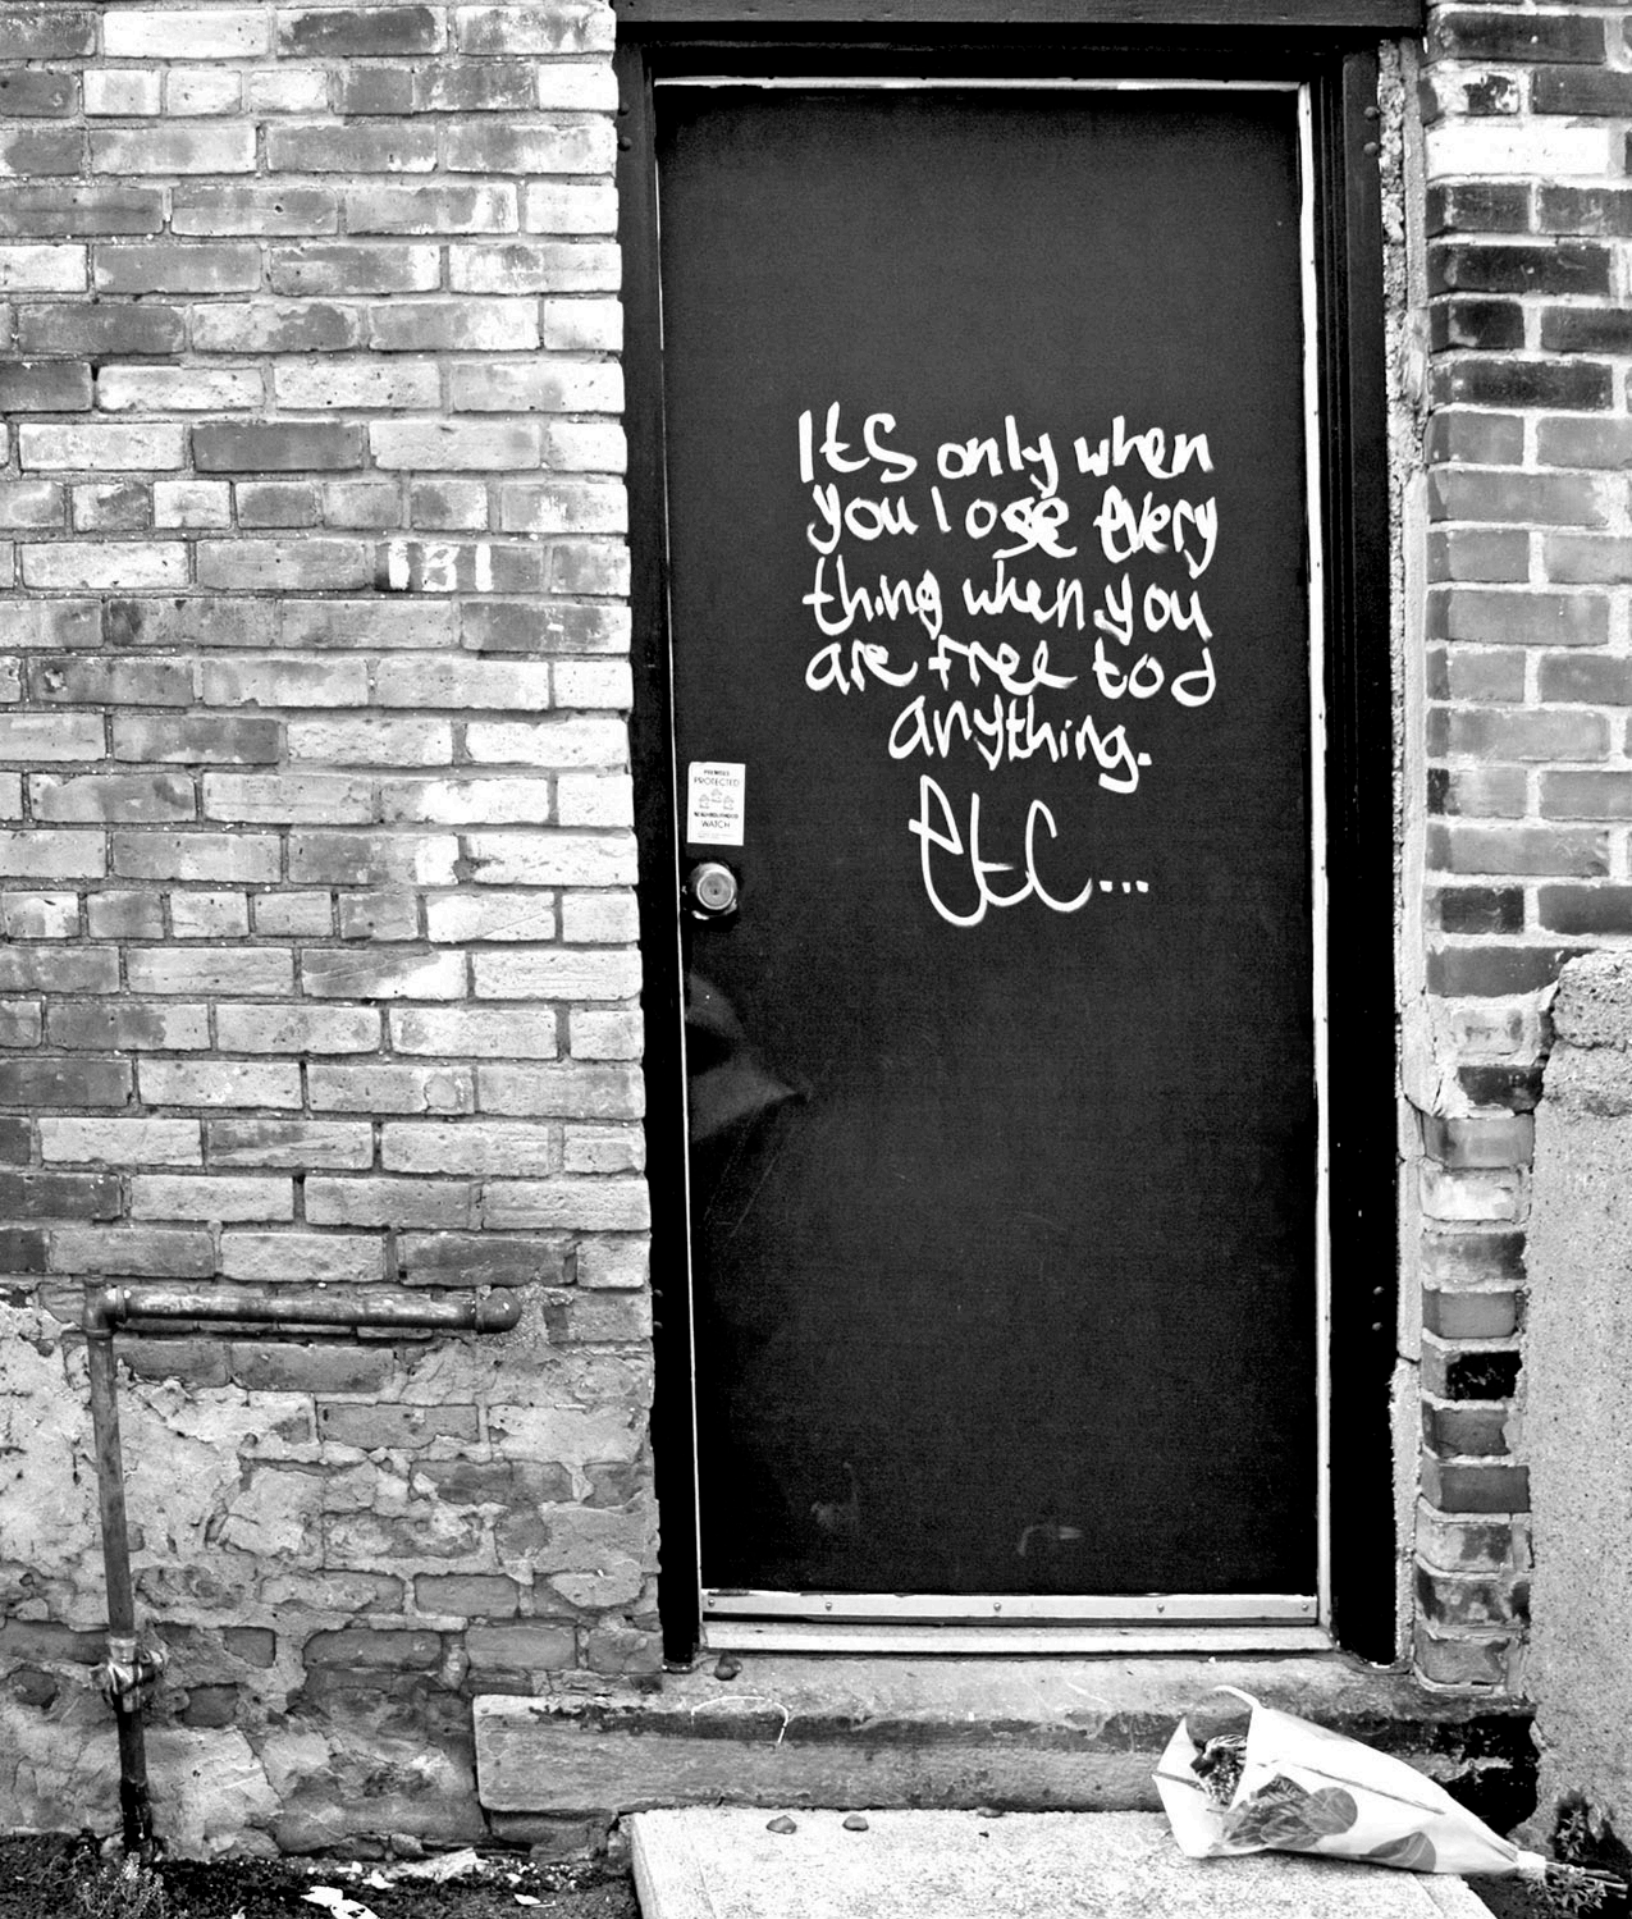 Its only when
you lose every
thing when you
are free to d
anything.
etc...
131
PREMISES
PROTECTED
NEIGHBOURHOOD
WATCH